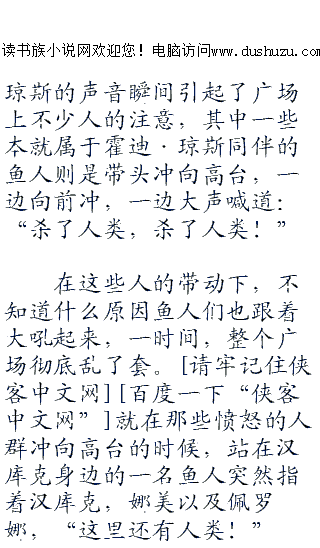 读书族小说网欢迎您！电脑访问www.dushuzu.com
琼斯的声音瞬间引起了广场
上不少人的注意，其中一些
本就属于霍迪·琼斯同伴的
鱼人则是带头冲向高台，一
边向前冲，一边大声喊道：
“杀了人类，杀了人类！”
在这些人的带动下，不
知道什么原因鱼人们也跟着
大吼起来，一时间，整个广
场彻底乱了套。[请牢记住侠
客中文网][百度一下“侠客
中文网”]就在那些愤怒的人
群冲向高台的时候，站在汉
库克身边的一名鱼人突然指
着汉库克，娜美以及佩罗
娜，“这里还有人类！”